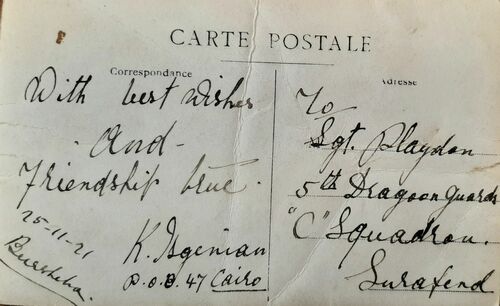 CARTE POSTALE
Correspondance
With best wishes
- And -
Friendship true.
25-11-21
K. Isgenian
P.O.B. 47 Cairo
Adresse
To
Sgt. Playdon
5th Dragoon Guards
"C" Squadron.
Surafend